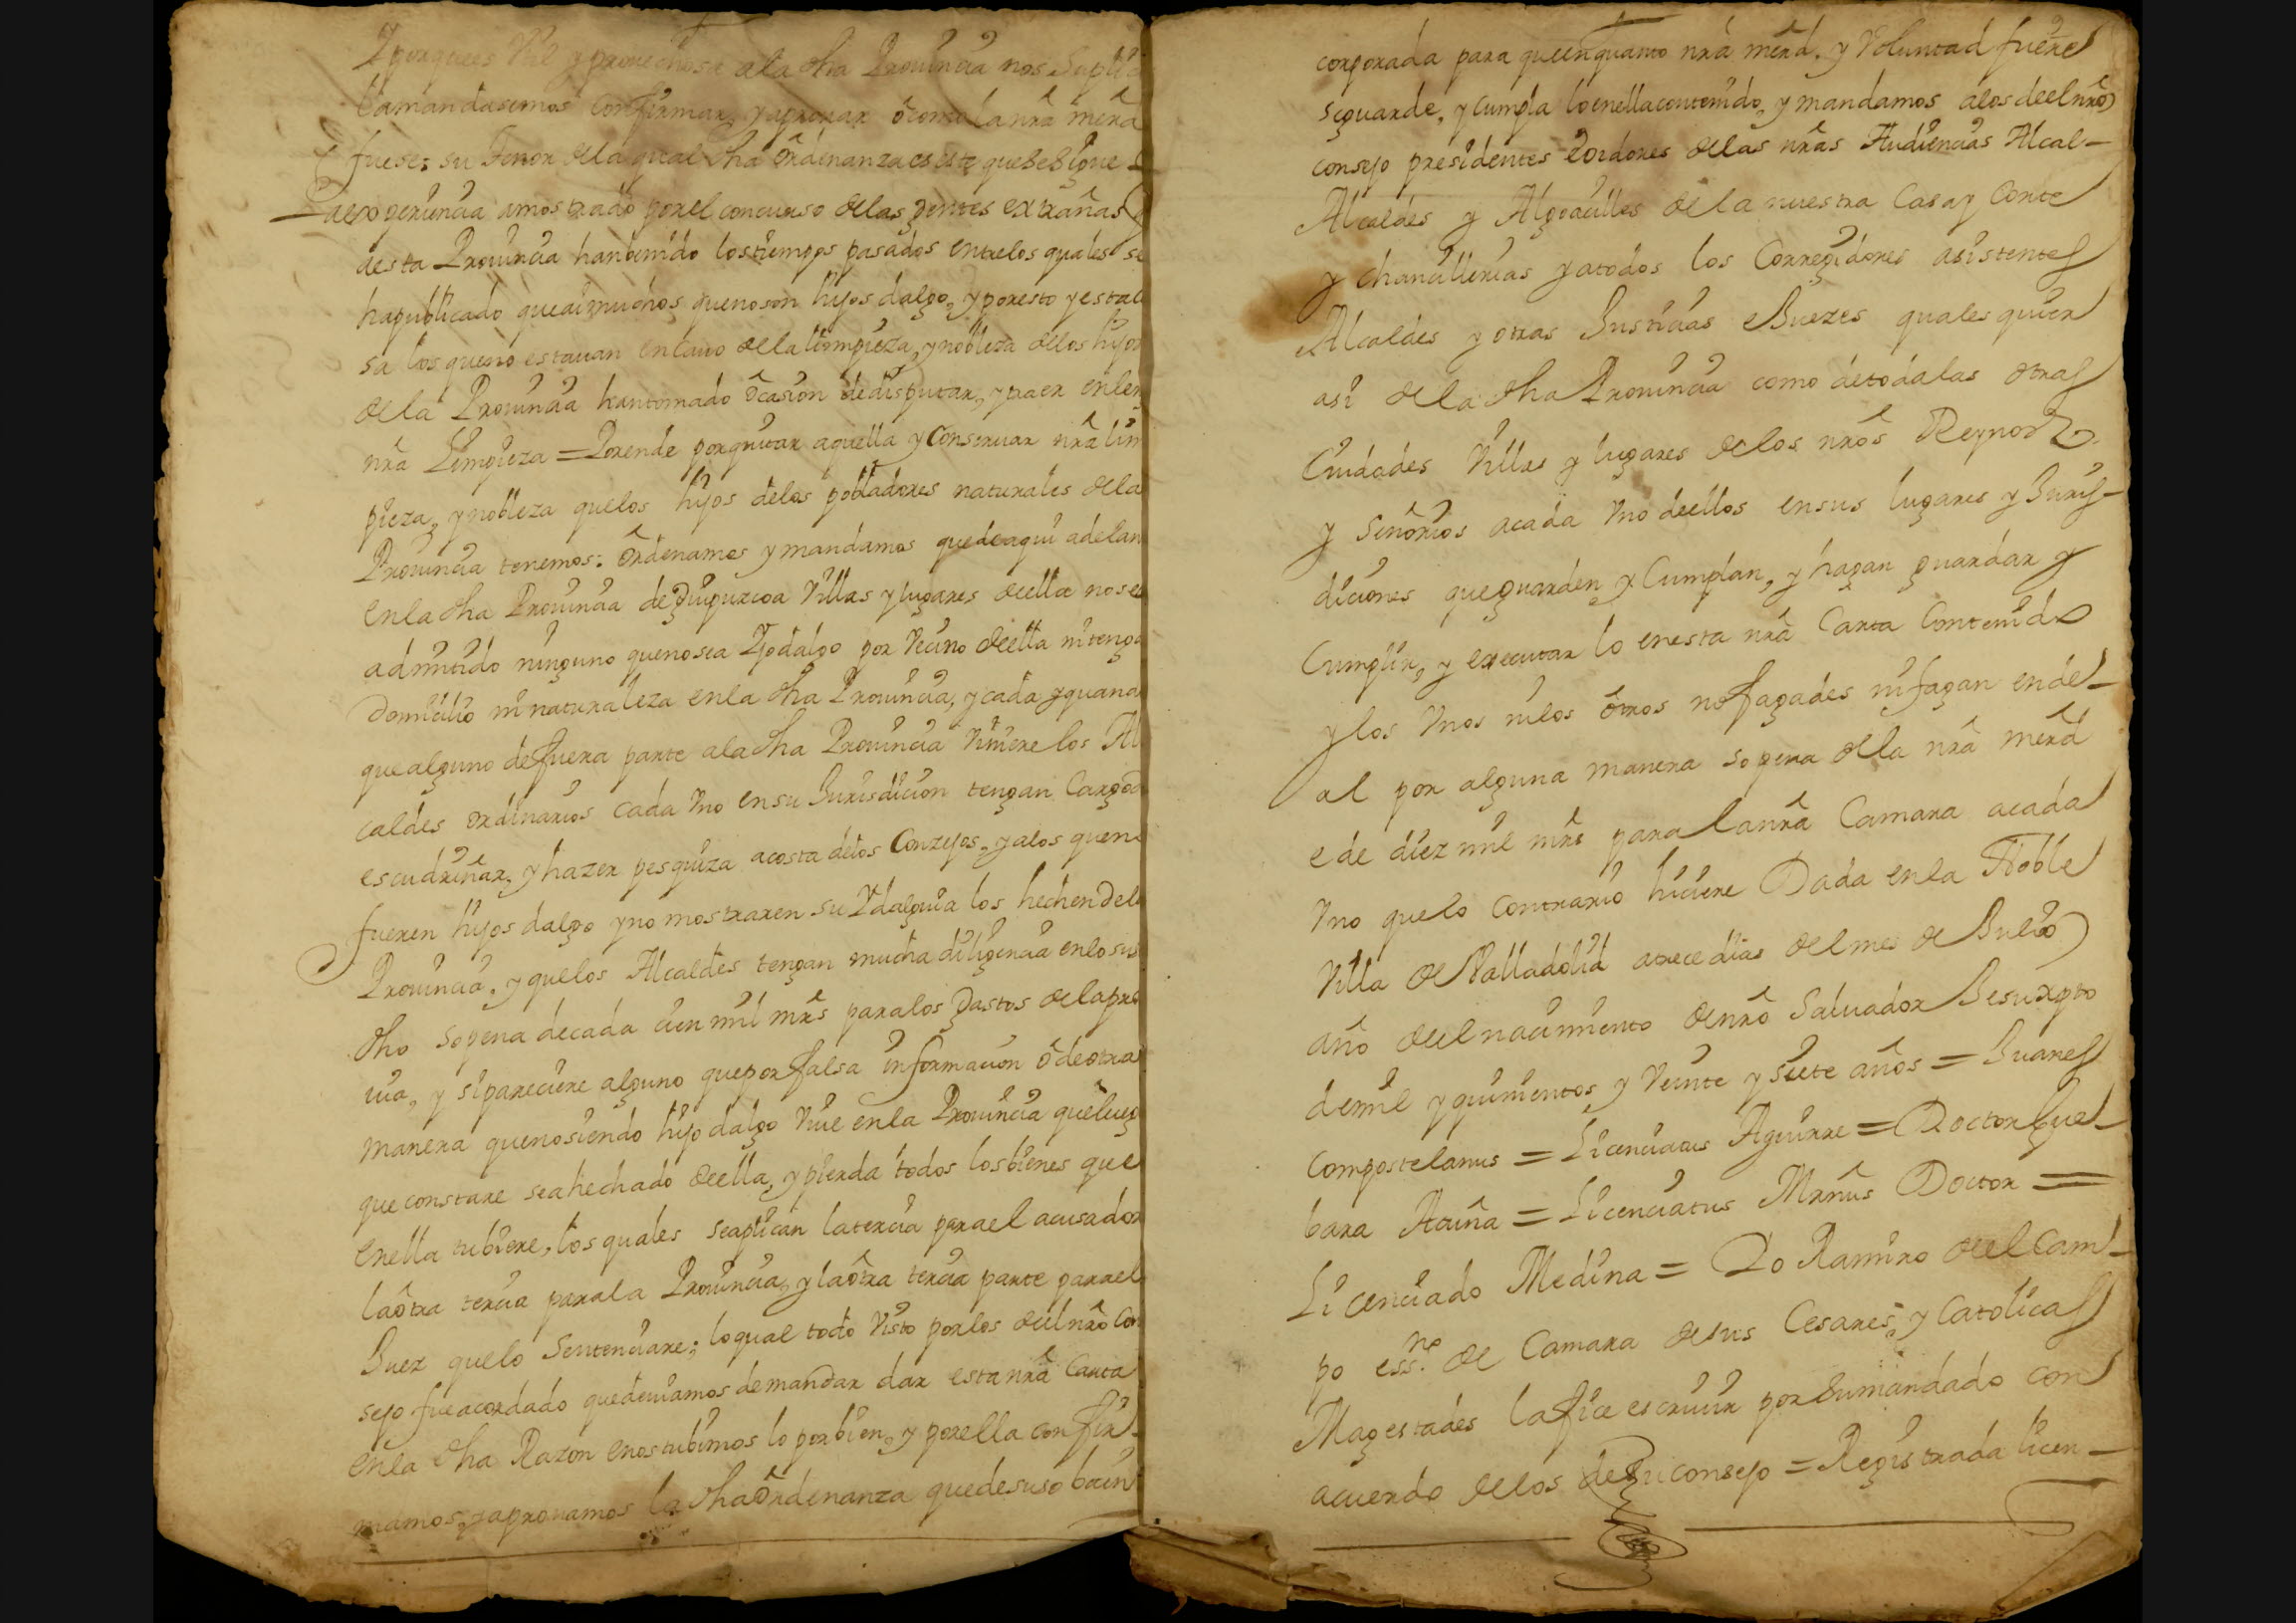 Yporquees Vtil yprouechosa ala dha Prouinçia nos Suplica
lamandasemos confirmar, yaprouar ôcomola nrâ merd
fuese: su Tenor dela qual dha Ôrdenanza es este quesesigue
aexperiençia amostrado porel concurso delas gentes extrañas q
aesta Prouinçia hanbenido lostiempos pasados entrelos quales se
hapublicado queaimuchos quenoson hijos dalgo, yporesto yestal
sa los queno estauan encauo dela limpieza, ynobleza delos hijos
dela Prouinçia hantomado ôcasion dedisputar, ypaer enlen
nrâ Limpieza = Porende porquitar aquella yConseruar nrâ lim
pieza, ynobleza quelos hijos delos pobladores naturales dela
Prouinçia tenemos: Ôrdenamos ymandamos quedeaqui adelan
Enla dha Prouinçia deGuipuzcoa Villas ylugares deella nosea
admitido ninguno quenosea Yjodalgo por Vecino deella nitenga
Domiçilio ninaturaleza enla dha Prouinçia, ycada yquand
quealguno defuera parte aladha Prouinçia Viniere los Al
caldes ordinarios cada Vno ensu Jurisdiçion tengan Cargod
escudriñar, yhazer pesquiza acosta delos Conzejos, yalos queno
fueren hijos dalgo yno mostraren su Ydalguia los hechen dela
Prouinçia, yquelos Alcaldes tengan mucha diligençia enlo suso
dho sopena decada çien mil mrs̃ paralos Gastos delapro
uia, y sipareçiere alguno queporfalsa informaçion ôdeotra
manera quenosiendo hijo dalgo Viue enla Prouinçia quelueg
queconstare seahechado deella, ypierda todos losbienes que
Enella tubiere, los quales seaplican laterçia parael acusador
laôtra terçia parala Prouinçia, ylaôtra terçia parte parael
Juez quelo Sentençiare; loqual todo Visto porlos deelnrô Con
sejo fueacordado quedeuiamos demandar dar estanrâ Carta
Enla dha Razon enostubimos lo porbien, y porella confir-
mamos, yaprouamos la dhaÔrdenanza quedesuso bain
corporada para queenquanto nrâ merd. y Voluntad fuere
seguarde, ycumpla loenellacontenido, ymandamos alos deelnrô
consejo presidentes eoidores delas nrâs Audiençias Alcal-
Alcaldes y Alguaçiles dela nuestra Casay Corte
y Chançillerias yatodos los Corregidores asistentes
Alcaldes y otras Justiçias eJuezes qualesquier
asi dela dha Prouinçia como detodalas otras
Ciudades Villas y lugares delos nrôs Reynos
y Señorios acada Vno deellos ensus lugares y Juris-
diçiones queguarden y Cumplan, y hagan guardar y
Cumplir, y executar lo enesta nrâ Carta Contenido
ylos Vnos nilos ôtros nofagades nifagan ende-
al por alguna manera sopena dela nrâ merd
ede diez mil mrs̃ paralanrâ Camara acada
Vno quelo contrario hiçiere Dada enla Noble
Villa de Valladolid atrecedias delmes de Julio
año deelnaçimiento denrô Saluador Jesuxpto
demil yquinientos, y Veinte ysiete años = Juanes
Compostelanus = Liçençiatus Aguirre = Doctor Gue-
bara Acuña = Liçençiatus Mrnûs Doctor =
Liçençiado Medina = Yo Ramiro deel Cam-
po essno. de Camara desus Cesares, y Catolicas
Magestades lafiçe escriuir porsumandado con
acuerdo delos desuconsejo = Registrada liçen-